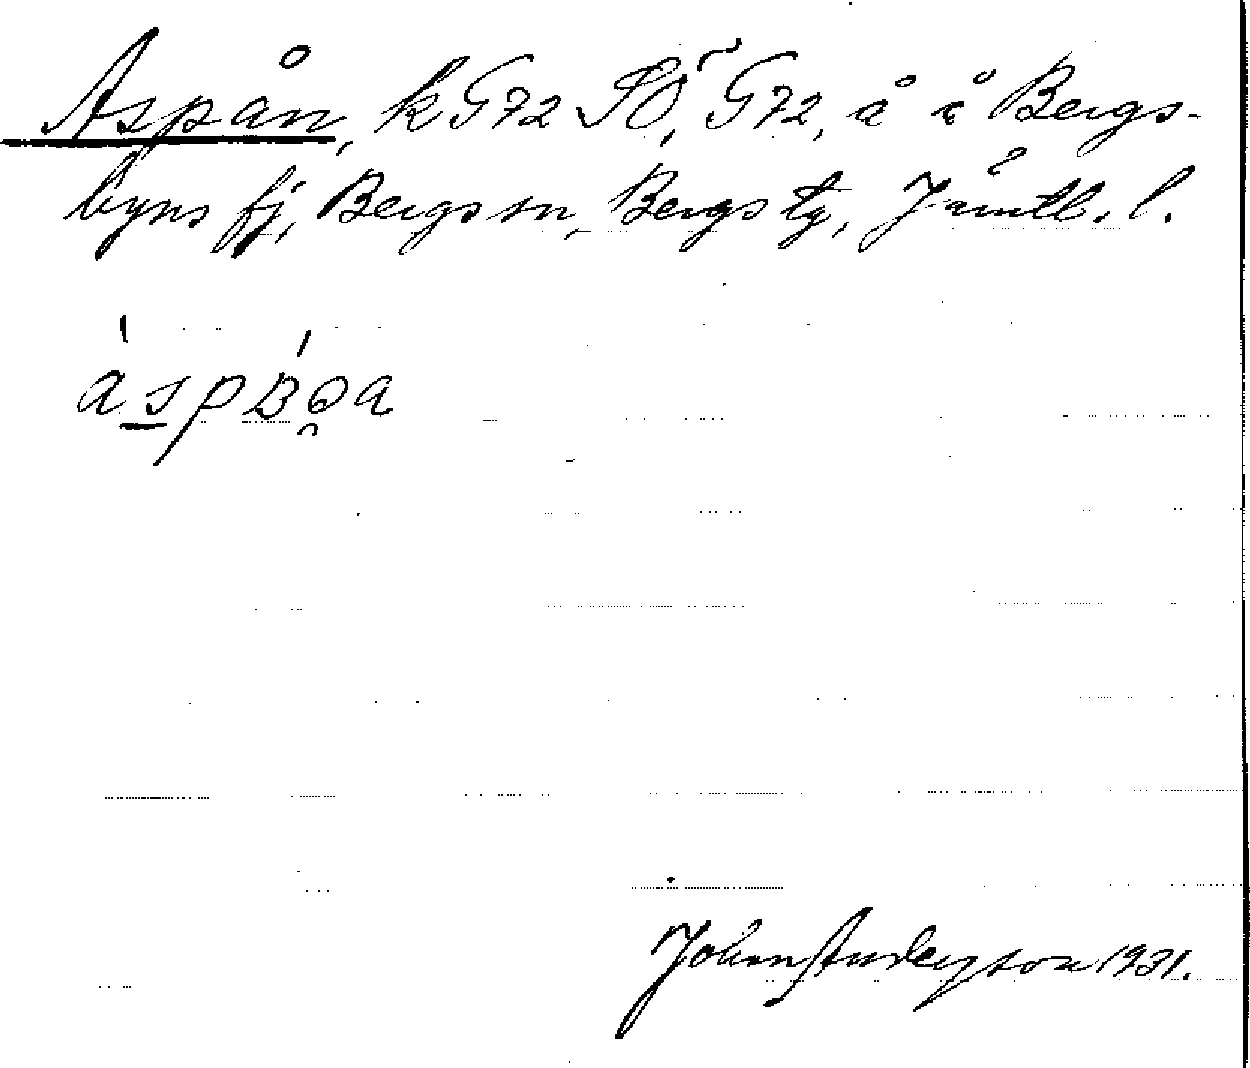 Aspån, k G72 SÖ, G72, å i Bergs-
byns fj, Bergs sn, Bergs tg, Jämtl. l.
John Anderson 1931.